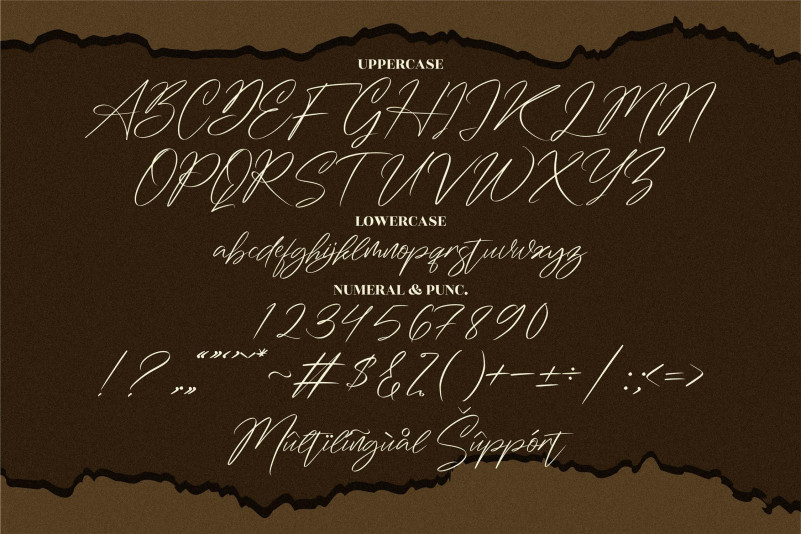 UPPERCASE
ABCDEFGHIJKLMN
OPQRSTUVWXYZ
LOWERCASE
abcdefghijklmnopqrstuvwxyz
NUMERAL & PUNC.
1234567890
!?,,“”‘’~*~#$&%()+−±÷/:;<=>
Mûltïlĩngùål Šûppórt